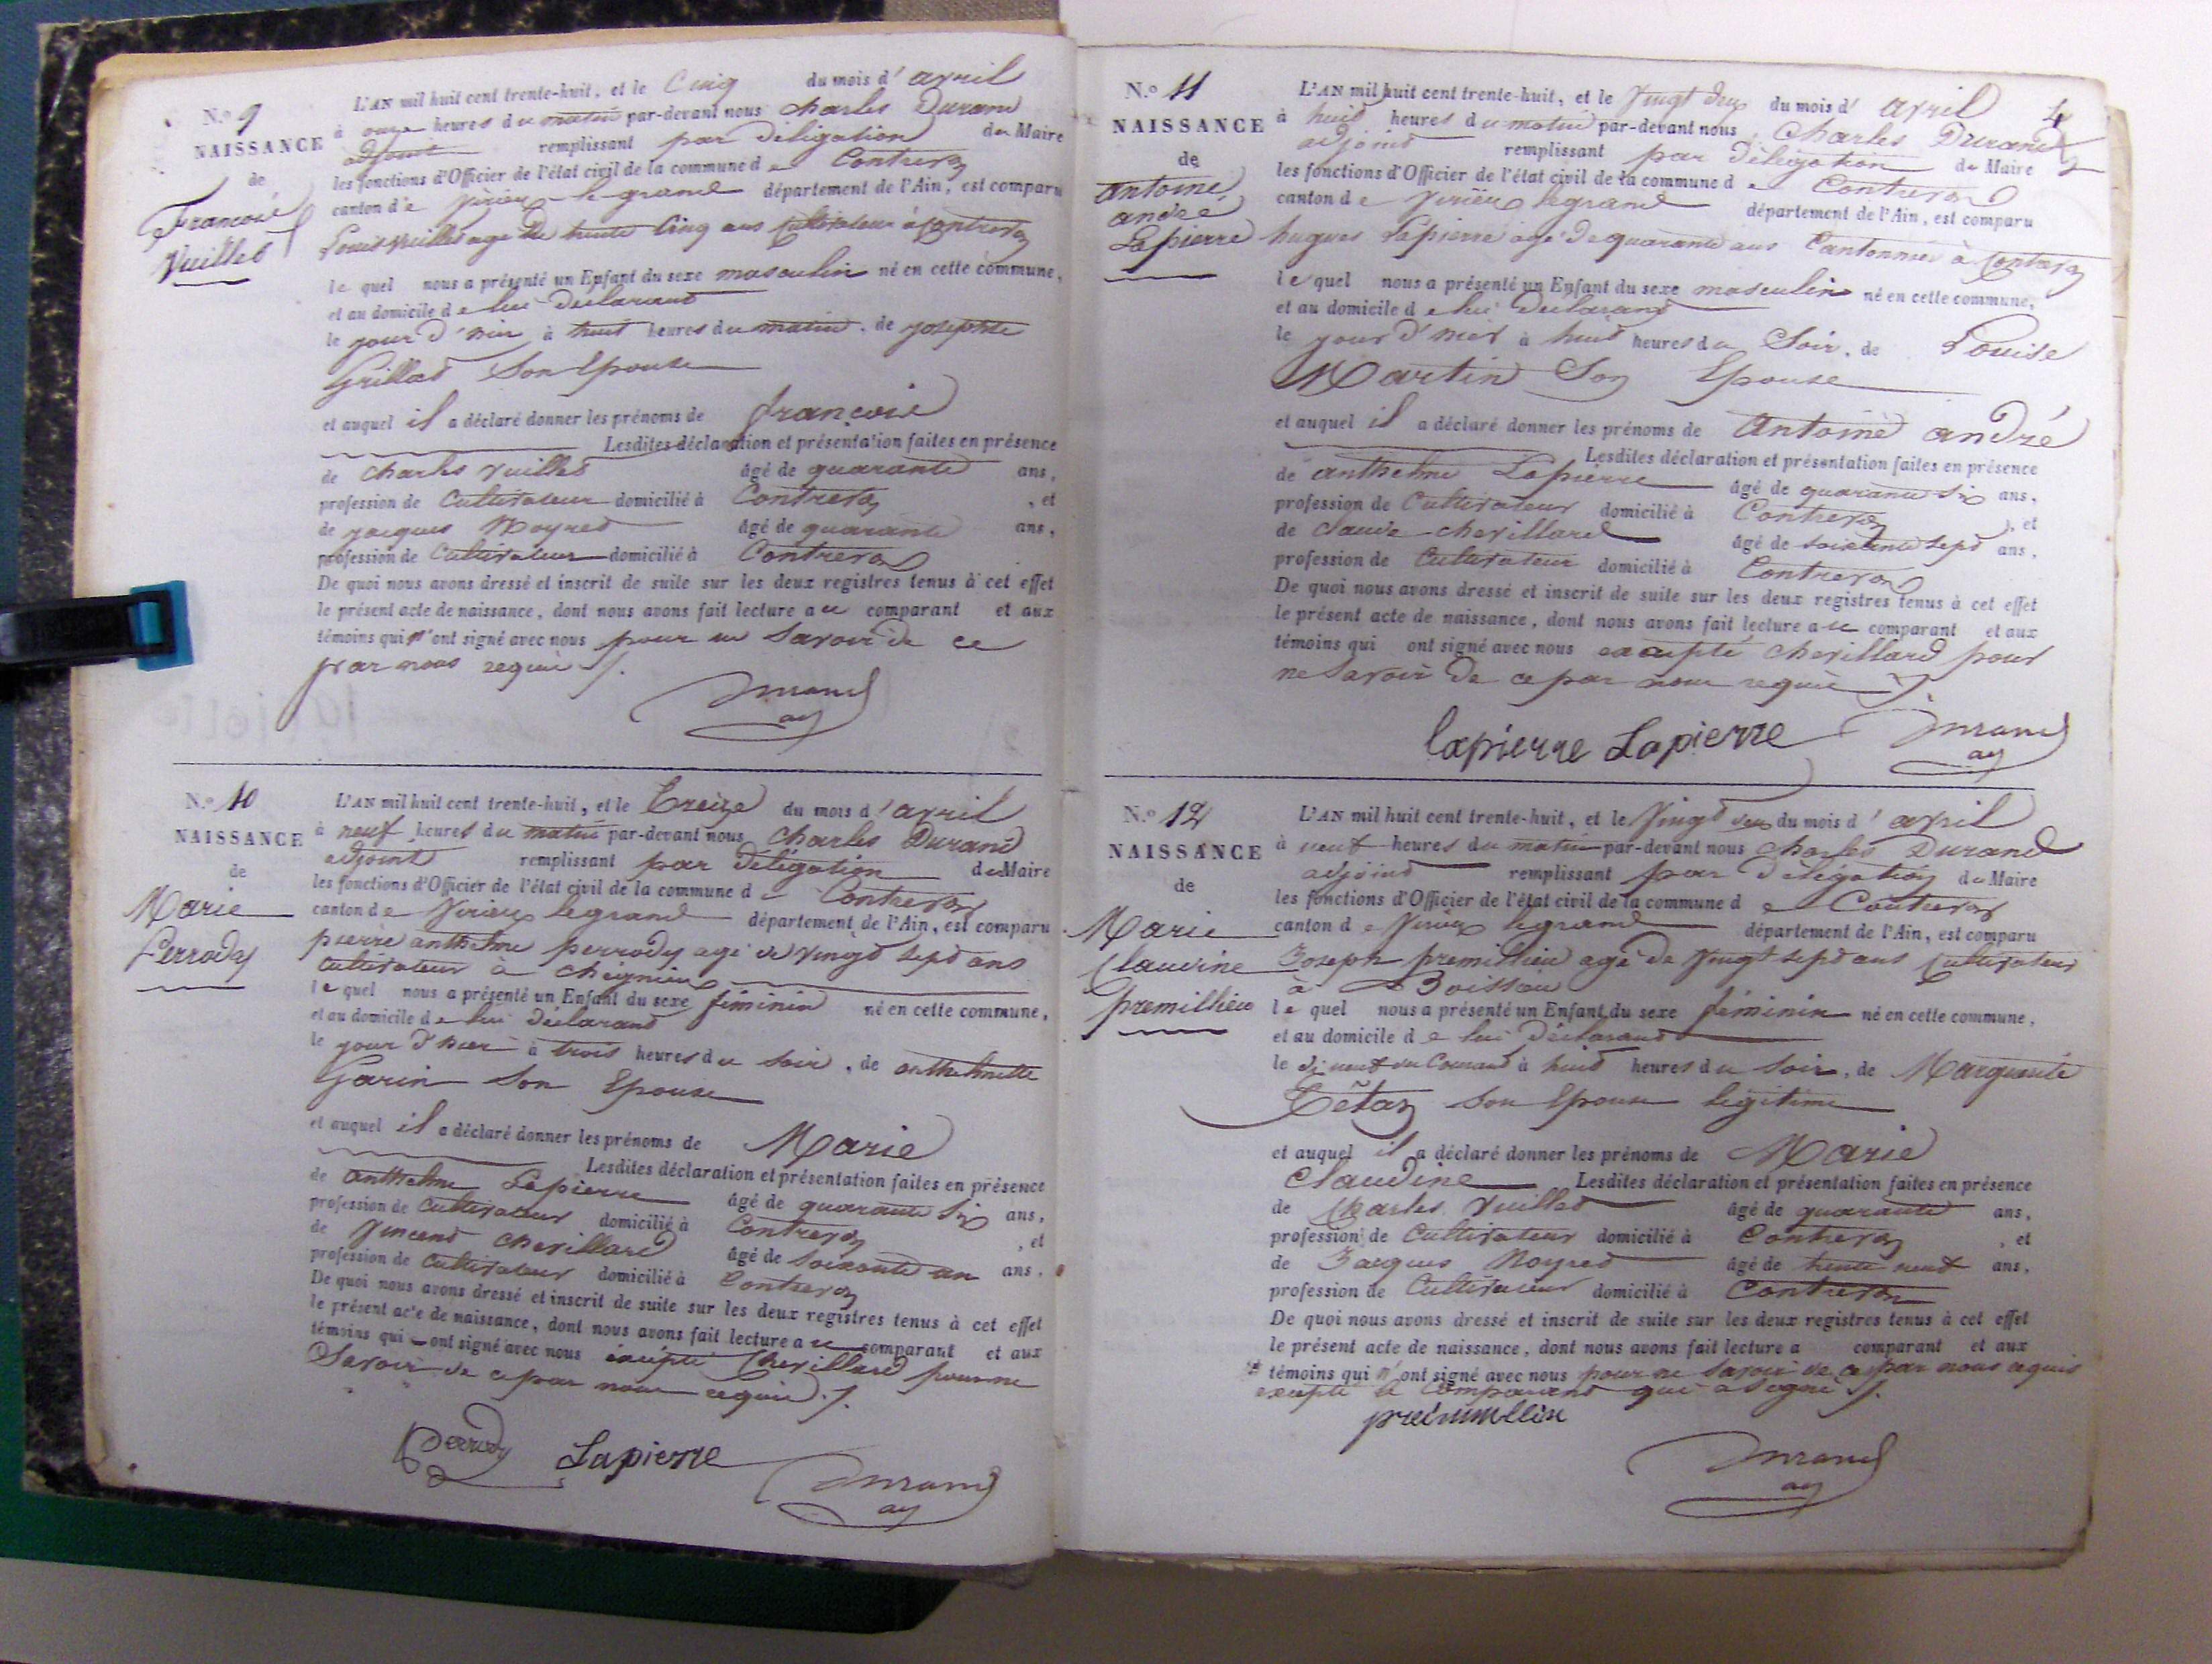 N.º 9
NAISSANCE
de
François
Vuillet
L'AN mil huit cent trente-huit, et le Cinq du mois d'avril
à onze heures du matin par-devant nous Charles Durand
adjoint remplissant par Délégation du Maire
les fonctions d'Officier de l'état civil de la commune de Contrevoz
canton de Virieu le grand département de l'Ain, est comparu
Louis Vuillet agé de trente Cinq ans Cultivateur à Contrevoz
lequel nous a présenté un Enfant du sexe masculin né en cette commune,
et au domicile de lui Déclarant
le jour d'hier à huit heures du matin, de josephte
Grillet Son Epouse
et auquel il a déclaré donner les prénoms de françois
Lesdites déclaration et présentation faites en présence
de Charles Vuillet âgé de quarante ans,
profession de Cultivateur domicilié à Contrevoz, et
de jacques Noyret âgé de quarante ans,
profession de Cultivateur domicilié à Contrevoz
De quoi nous avons dressé et inscrit de suite sur les deux registres tenus à cet effet
le présent acte de naissance, dont nous avons fait lecture au comparant et aux
témoins qui n'ont signé avec nous pour ne Savoir de ce
par nous requis ./.
Durand
adj
N.º 10
NAISSANCE
de
Marie
Perrody
L'AN mil huit cent trente-huit, et le treize du mois d'avril
à neuf heures du matin par-devant nous Charles Durand
adjoint remplissant par Délégation du Maire
les fonctions d'Officier de l'état civil de la commune de Contrevoz
canton de Virieu le grand département de l'Ain, est comparu
pierre anthelme perrody agé de vingt sept ans
Cultivateur à Cheignieu
lequel nous a présenté un Enfant du sexe féminin né en cette commune,
et au domicile de lui Déclarant
le jour d'hier à trois heures du soir, de anthelmette
Garin Son Epouse
et auquel il a déclaré donner les prénoms de Marie
Lesdites déclaration et présentation faites en présence
de anthelme Lapierre âgé de quarante Six ans,
profession de Cultivateur domicilié à Contrevoz, et
de Vincent Chevillard âgé de Soixante un ans,
profession de Cultivateur domicilié à Contrevoz
De quoi nous avons dressé et inscrit de suite sur les deux registres tenus à cet effet
le présent acte de naissance, dont nous avons fait lecture au comparant et aux
témoins qui ont signé avec nous éxcépté Chevillard pour ne
Savoir de ce par nous requis ./.
Perrody Lapierre Durand
adj
4
N.º 11
NAISSANCE
de
antoine
andré
Lapierre
L'AN mil huit cent trente-huit, et le Vingt deux du mois d'avril
à huit heures du matin par-devant nous Charles Durand
adjoint remplissant par Délégation du Maire
les fonctions d'Officier de l'état civil de la commune de Contrevoz
canton de Virieu legrand département de l'Ain, est comparu
hugues Lapierre agé de quarante ans Cantonnier à Contrevoz
lequel nous a présenté un Enfant du sexe masculin né en cette commune,
et au domicile de lui Declarant
le jour d'hier à huit heures du Soir, de Louise
Martin Son Epouse
et auquel il a déclaré donner les prénoms de Antoine andré
Lesdites déclaration et présentation faites en présence
de anthelme Lapierre âgé de quarante six ans,
profession de Cultivateur domicilié à Contrevoz, et
de claude chevillard âgé de soixante sept ans,
profession de Cultivateur domicilié à Contrevoz
De quoi nous avons dressé et inscrit de suite sur les deux registres tenus à cet effet
le présent acte de naissance, dont nous avons fait lecture au comparant et aux
témoins qui ont signé avec nous excepté chevillard pour
ne Savoir de ce par nous requis ./.
lapierre Lapierre Durand
adj
N.º 12
NAISSANCE
de
Marie
Claudine
premillieu
L'AN mil huit cent trente-huit, et le Vingt deux du mois d'avril
à neuf heures du matin par-devant nous Charles Durand
adjoint remplissant par Délégation du Maire
les fonctions d'Officier de l'état civil de la commune de Contrevoz
canton de Virieu legrand département de l'Ain, est comparu
Joseph premillieu agé de Vingt sept ans Cultivateur
à Boissieu
lequel nous a présenté un Enfant du sexe féminin né en cette commune,
et au domicile de lui Déclarant
le dix neuf du Courant à huit heures du Soir, de Marguerite
Tétaz Son Epouse légitime
et auquel il a déclaré donner les prénoms de Marie
Claudine Lesdites déclaration et présentation faites en présence
de Charles Vuillet âgé de quarante ans,
profession de Cultivateur domicilié à Contrevoz, et
de Jacques Noyret âgé de trente neuf ans,
profession de Cultivateur domicilié à Contrevoz
De quoi nous avons dressé et inscrit de suite sur les deux registres tenus à cet effet
le présent acte de naissance, dont nous avons fait lecture a comparant et aux
témoins qui n'ont signé avec nous pour ne Savoir de ce par nous requis
excepté le Comparant qui a signé ./.
Durand
adj